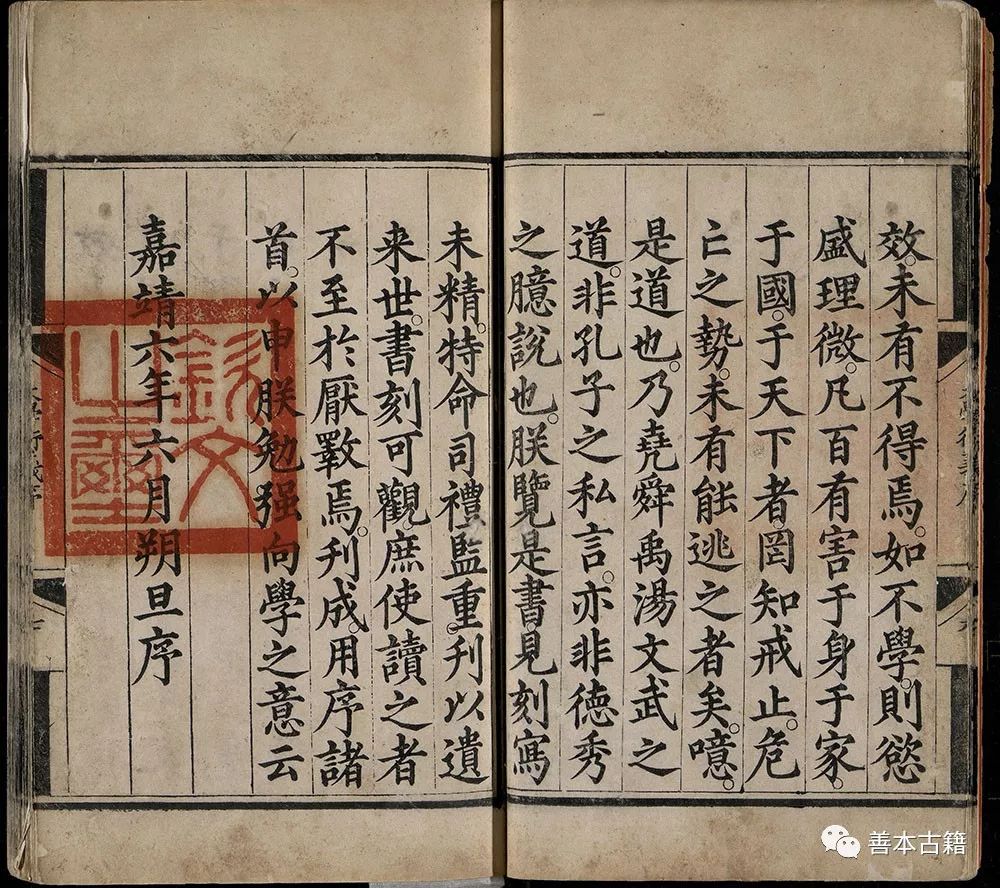 效。未有不得焉。如不學。則慾
盛理微。凡百有害于身于家。
于國。于天下者。罔知戒止。危
亡之勢。未有能逃之者矣。噫。
是道也。乃堯舜禹湯文武之
道。非孔子之私言。亦非德秀
之臆說也。朕覽是書。見刻寫
未精。特命司禮監重刊。以遺
来世。書刻可觀。庶使讀之者
不至於厭斁焉。刋成。用序諸
首。以申朕勉强向學之意云
嘉靖六年六月朔旦序
欽文
之璽
善本古籍